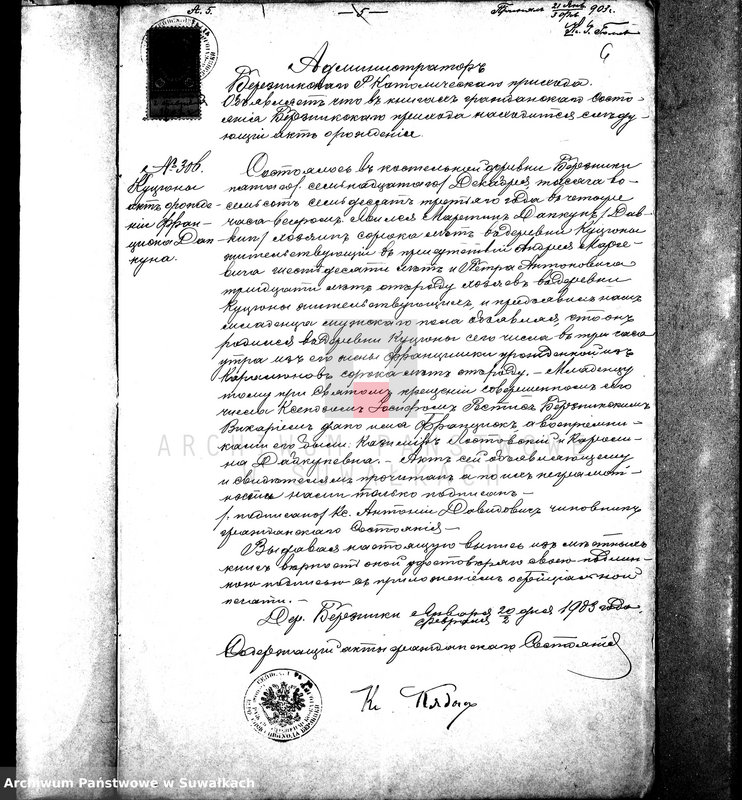 А. 5.
— 5 —
21 Янв. 903 г.
Администраторъ
Березникскаго Р. Католическаго прихода.
Объявляетъ что въ книгахъ гражданскаго состо-
янія Березникскаго прихода находится слѣду-
ющій актъ о рожденіи
№ 306.
Куцюны
актъ о рожде-
ніи Фран-
циска Дап-
куна.
Состоялось въ костельней деревни Березники
пятаго/ семьнадцатаго/ Декабря тысяча во-
семьсотъ семьдесятъ третьяго года въ четыре
часа вечеромъ. Явился Мартинъ Дапкунъ/Дав-
кин/ хозяинъ сорока лѣтъ въ деревни Куцюны
жительствующій въ присутствіи Андрея Марце-
вича шестидесяти лѣтъ и Петра Антоновича
тридцати лѣтъ отъ роду хозяевъ въ деревни
Куцюны жительствующихъ, и предъявилъ намъ
младенца мужскаго пола объявляя, что онъ
родился въ деревни Куцюны сего числа въ три часа
утра изъ его жены Францишки урожденной изъ
сорока лѣтъ отъ роду. — Младенцу
тому при Святомъ крещеніи совершенномъ сего
числа Ксендзомъ Іосифомъ Березникскимъ
Викаріемъ дано имя Францискъ, а воспріемни-
ками его были Казиміръ и
на Дайкупевна. Актъ сей объявляющему
и свидѣтелямъ прочитанъ а по ихъ неграмот-
ности нами только подписанъ —
/ подписано / Кс. Антоній Давидовичъ чиновникъ
гражданскаго Состоянія —
Выдавая настоящую выпись изъ мѣстныхъ
книгъ вѣрность оной удостовѣряю своею подлин-
ною подписью съ приложеніемъ оффиціальной
печати. —
Дер. Березники Января 20 дня 1903 года.
Февраля 2
Содержащій акты гражданскаго Состоянія
Кс.
ARCHIWUM PAŃSTWOWE
W SUWAŁKACH
Archiwum Państwowe w Suwałkach